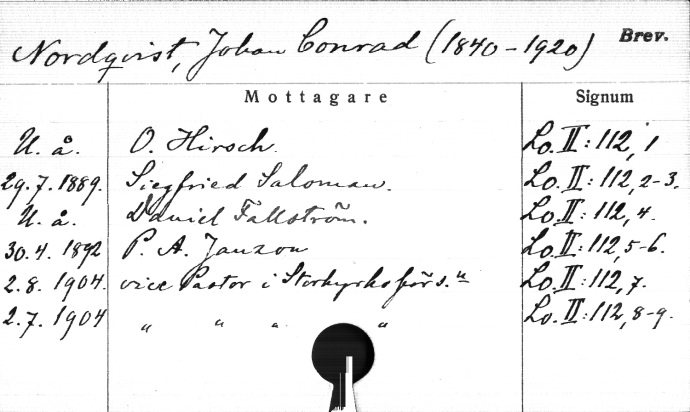 Nordqvist, Johan Conrad (1840-1920) Brev.
Mottagare Signum
U. å. O. Hirsch. Lo. II: 112, 1
29.7.1889. Siegfried Saloman. Lo. II: 112, 2-3.
U. å. Daniel Fallström. Lo. II: 112, 4.
30.4.1892 P. A. Janzon Lo. II: 112, 5-6.
2.8.1904. vice Pastor i Storkyrkoförs. Lo. II: 112, 7.
2.7.1904 " " " " Lo. II: 112, 8-9.